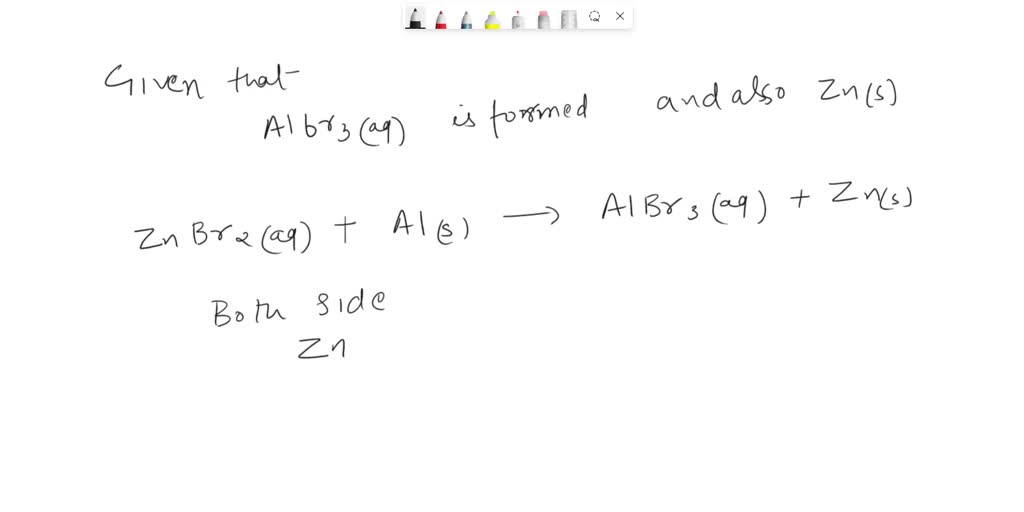 Given that
Albr3(aq) is formed and also Zn(s)
ZnBr2(aq) + Al(s) → AlBr3(aq) + Zn(s)
Both side
Zn